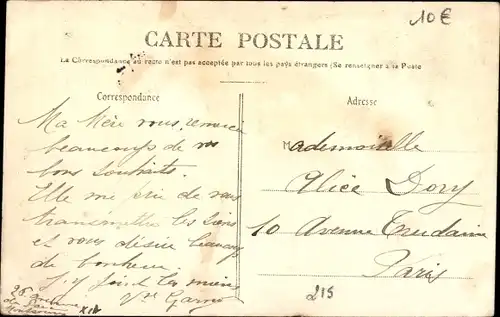 10€
CARTE POSTALE
La Correspondance au recto n'est pas acceptée par tous les pays étrangers (Se renseigner à la Poste
Correspondance
Adresse
Ma Mère vous remercie
beaucoup de vos
bons souhaits.
Elle me prie de vous
transmettre les siens
et vous désire beaucoup
de bonheur.
J'y joint les miens
Mademoiselle
Alice Dory
10 Avenue Trudaine
Paris
215
26